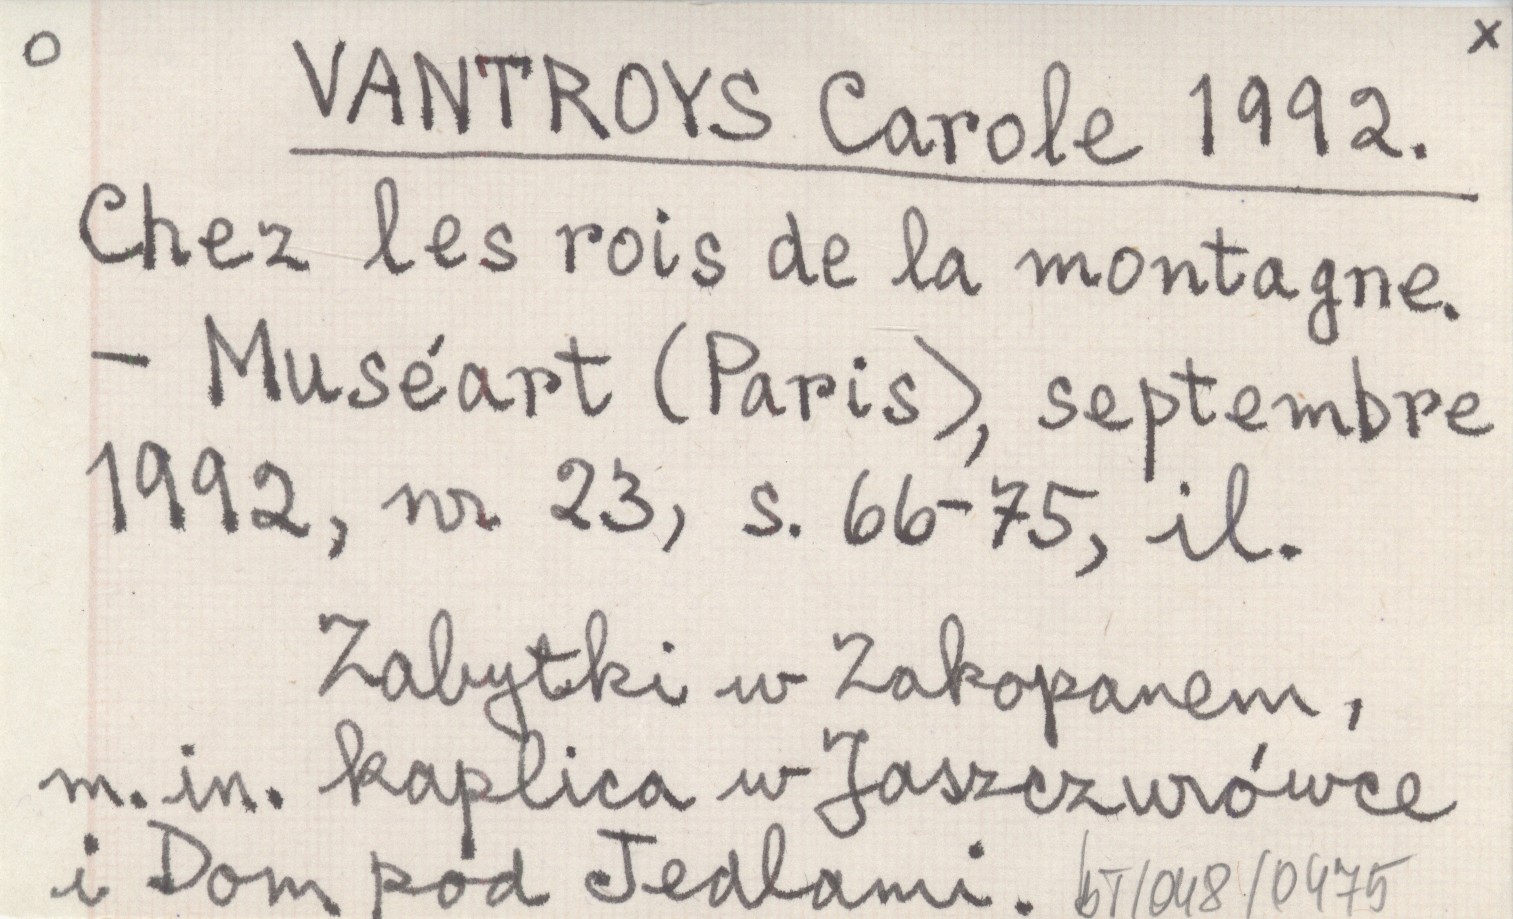 O x
VANTROYS Carole 1992.
Chez les rois de la montagne.
- Muséart (Paris), septembre
1992, nr 23, s. 66-75, il.
Zabytki w Zakopanem,
m.in. kaplica w Jaszczurówce
i Dom pod Jedlami. bT/048/0475